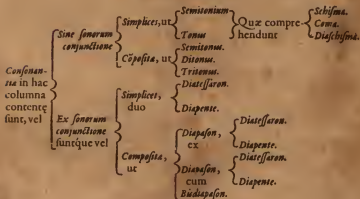 Consonan-
tiæ in hac
columna
contentę
sunt, vel
Sine sonorum
conjunctione
Simplices, ut
Semitonium
Tonus
Quæ compre-
hendunt
Schisma.
Coma.
Diaschisma.
Cõposita, ut
Semitonus.
Ditonus.
Tritonus.
Ex sonorum
conjunctione
suntque vel
Simplices,
duo
Diatessaron.
Diapente.
Composita,
ut
Diapason,
ex
Diatessaron.
Diapente.
Diapason,
cum
Diatessaron.
Diapente.
Bisdiapason.